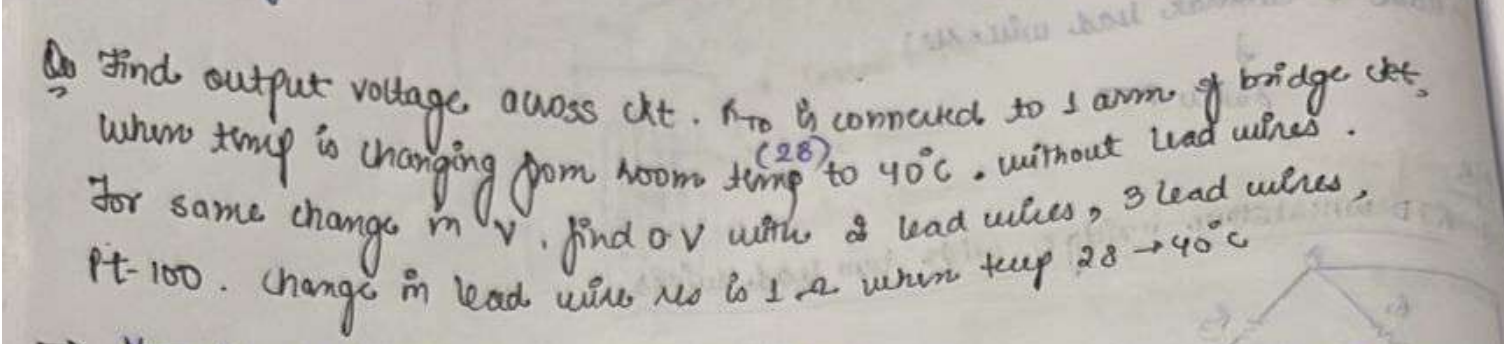 Q. Find output voltage across ckt. RTD is connected to 1 arm of bridge ckt,
when temp is changing from room temp (28) to 40°C. without lead wires.
For same change in V, find o V with 2 lead wires, 3 lead wires,
Pt-100. Change in lead wire res is 1 Ω when temp 28 → 40°C